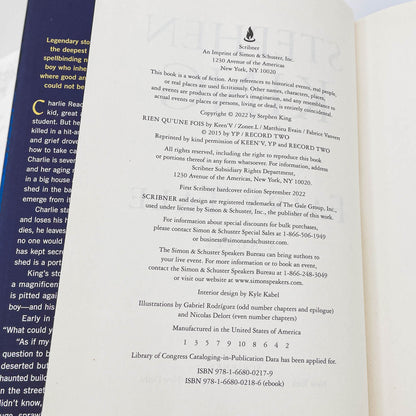 Legendary story
the deepest
spellbinding n
boy who inher
where good an
could not be
Charlie Read
kid, great a
student. But he
killed in a hit-a
and grief drove
how to take ca
Charlie is seve
and her aging r
in a big house
shed in the ba
emerge from it
Charlie sta
and loses his h
dies, he leaves
no one would
has kept secre
shed is a porta
King's sto
a magnificen
is pitted again
boy—and his
Early in
"What could y
"As if my
question to b
deserted but
haunted build
in the street
didn't know,
Scribner
An Imprint of Simon & Schuster, Inc.
1230 Avenue of the Americas
New York, NY 10020
This book is a work of fiction. Any references to historical events, real people,
or real places are used fictitiously. Other names, characters, places,
and events are products of the author's imagination, and any resemblance to
actual events or places or persons, living or dead, is entirely coincidental.
Copyright © 2022 by Stephen King
RIEN QU'UNE FOIS by Keen'V / Zonee.L / Matthieu Evain / Fabrice Vanvert
© 2015 by YP / RECORD TWO
Reprinted by kind permission of KEEN'V, YP and RECORD TWO
All rights reserved, including the right to reproduce this book
or portions thereof in any form whatsoever. For information, address
Scribner Subsidiary Rights Department,
1230 Avenue of the Americas, New York, NY 10020.
First Scribner hardcover edition September 2022
SCRIBNER and design are registered trademarks of The Gale Group, Inc.,
used under license by Simon & Schuster, Inc., the publisher of this work.
For information about special discounts for bulk purchases,
please contact Simon & Schuster Special Sales at 1-866-506-1949
or business@simonandschuster.com.
The Simon & Schuster Speakers Bureau can bring authors to
your live event. For more information or to book an event,
contact the Simon & Schuster Speakers Bureau at 1-866-248-3049
or visit our website at www.simonspeakers.com.
Interior design by Kyle Kabel
Illustrations by Gabriel Rodríguez (odd number chapters and epilogue)
and Nicolas Delort (even number chapters)
Manufactured in the United States of America
1 3 5 7 9 10 8 6 4 2
Library of Congress Cataloging-in-Publication Data has been applied for.
ISBN 978-1-6680-0217-9
ISBN 978-1-6680-0218-6 (ebook)